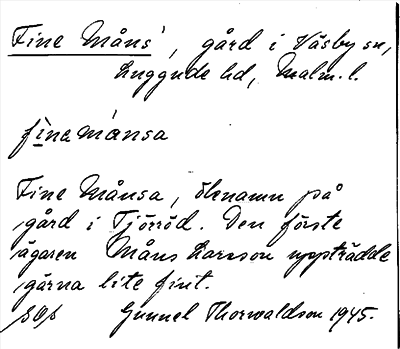 Fine Måns', gård i Väsby sn,
Luggude hd, Malm. l.
fìnamánsa
Fine Månsa, öknamn på
gård i Tjörröd. Den förste
ägaren Måns Larsson uppträdde
gärna lite fint.
Gunnel Thorwaldson 1945.